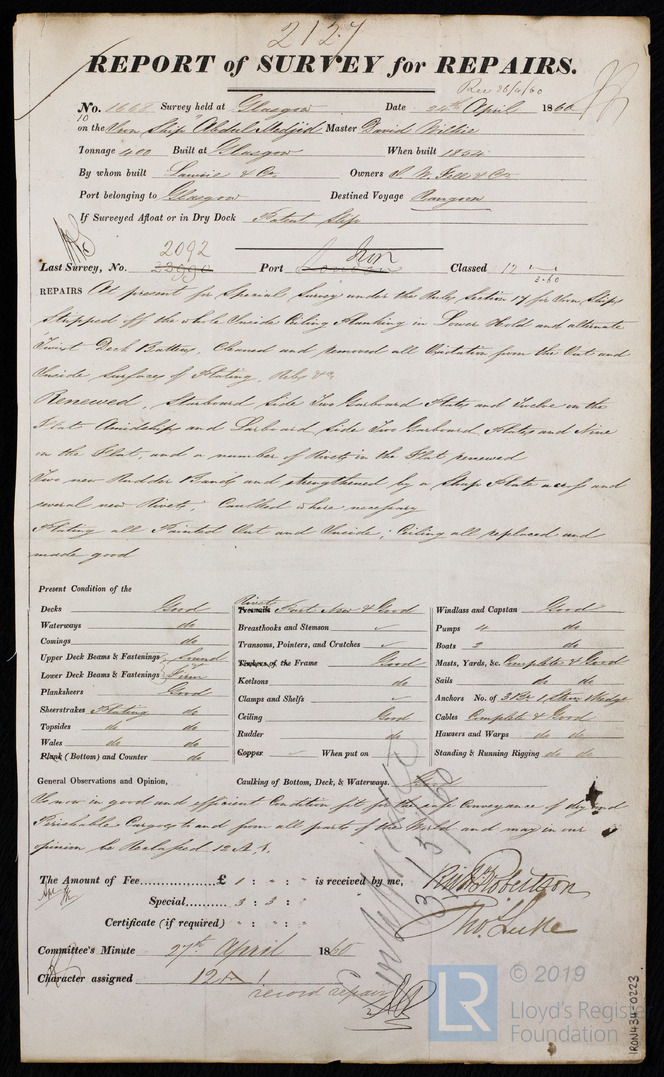 2127
REPORT of SURVEY for REPAIRS.
Rec 26/4/60
No. 1668 Survey held at Glasgow Date 24th April 1860
10
on the Iron Ship "Abdul Medjid" Master David Wilkie
Tonnage 400 Built at Glasgow When built 1854
By whom built Lawrie & Co Owners W. Fell & Co
Port belonging to Glasgow Destined Voyage Rangoon
If Surveyed Afloat or in Dry Dock Patent Slip
2092 Iron
Last Survey, No. Port London Classed 12
3.60
REPAIRS At present for Special Survey under the Rules, Section 17 for Iron Ships
Stripped off the whole Inside Ceiling Planking in Lower Hold and alternate
Twixt Deck Battens, Cleaned and removed all Oxidation from the Out and
Inside Surfaces of Plating, Ribs &c
Renewed, Starboard Side Two Garboard Plates and Twelve in the
Flat Amidship and Larboard Side Two Garboard Plates and Nine
in the Flat, and a number of Rivets in the Flat renewed
Two new Rudder Bands and strengthened by a Plate across and
several new Rivets, Caulked where necessary
Plating all Painted Out and Inside; Ceiling all replaced and
made good
Present Condition of the
Decks Good
Waterways do
Comings do
Upper Deck Beams & Fastenings Sound
Lower Deck Beams & Fastenings Firm
Planksheers Good
Sheerstrakes Plating do
Topsides do do
Wales do do
Plank (Bottom) and Counter do
Rivets
Treenails Part New & Good
Breasthooks and Stemson ✓
Transoms, Pointers, and Crutches ✓
Timbers of the Frame Good
Keelsons do
Clamps and Shelfs ✓
Ceiling Good
Rudder do
Copper ✓ When put on
Windlass and Capstan Good
Pumps 4 do
Boats 3 do
Masts, Yards, &c. Complete & Good
Sails do do
Anchors No. of 3 Br 1 Strm Kedge
Cables Complete & Good
Hawsers and Warps do do
Standing & Running Rigging do do
General Observations and Opinion, Caulking of Bottom, Deck, & Waterways. Good
Is now in good and efficient Condition fit for the safe Conveyance of dry and
Perishable Cargoes to and from all parts of the World and may in our
opinion be Reclassed 12 A.1.
The Amount of Fee............... £ 1 : " : " is received by me,
Special......... 3 : 3 : "
Certificate (if required) " : " : "
Robertson
Thos. Luke
Committee's Minute 27th April 1860
Character assigned 12 A 1
record repairs
LR
© 2019
Lloyd's Register
Foundation
IRON434-0223